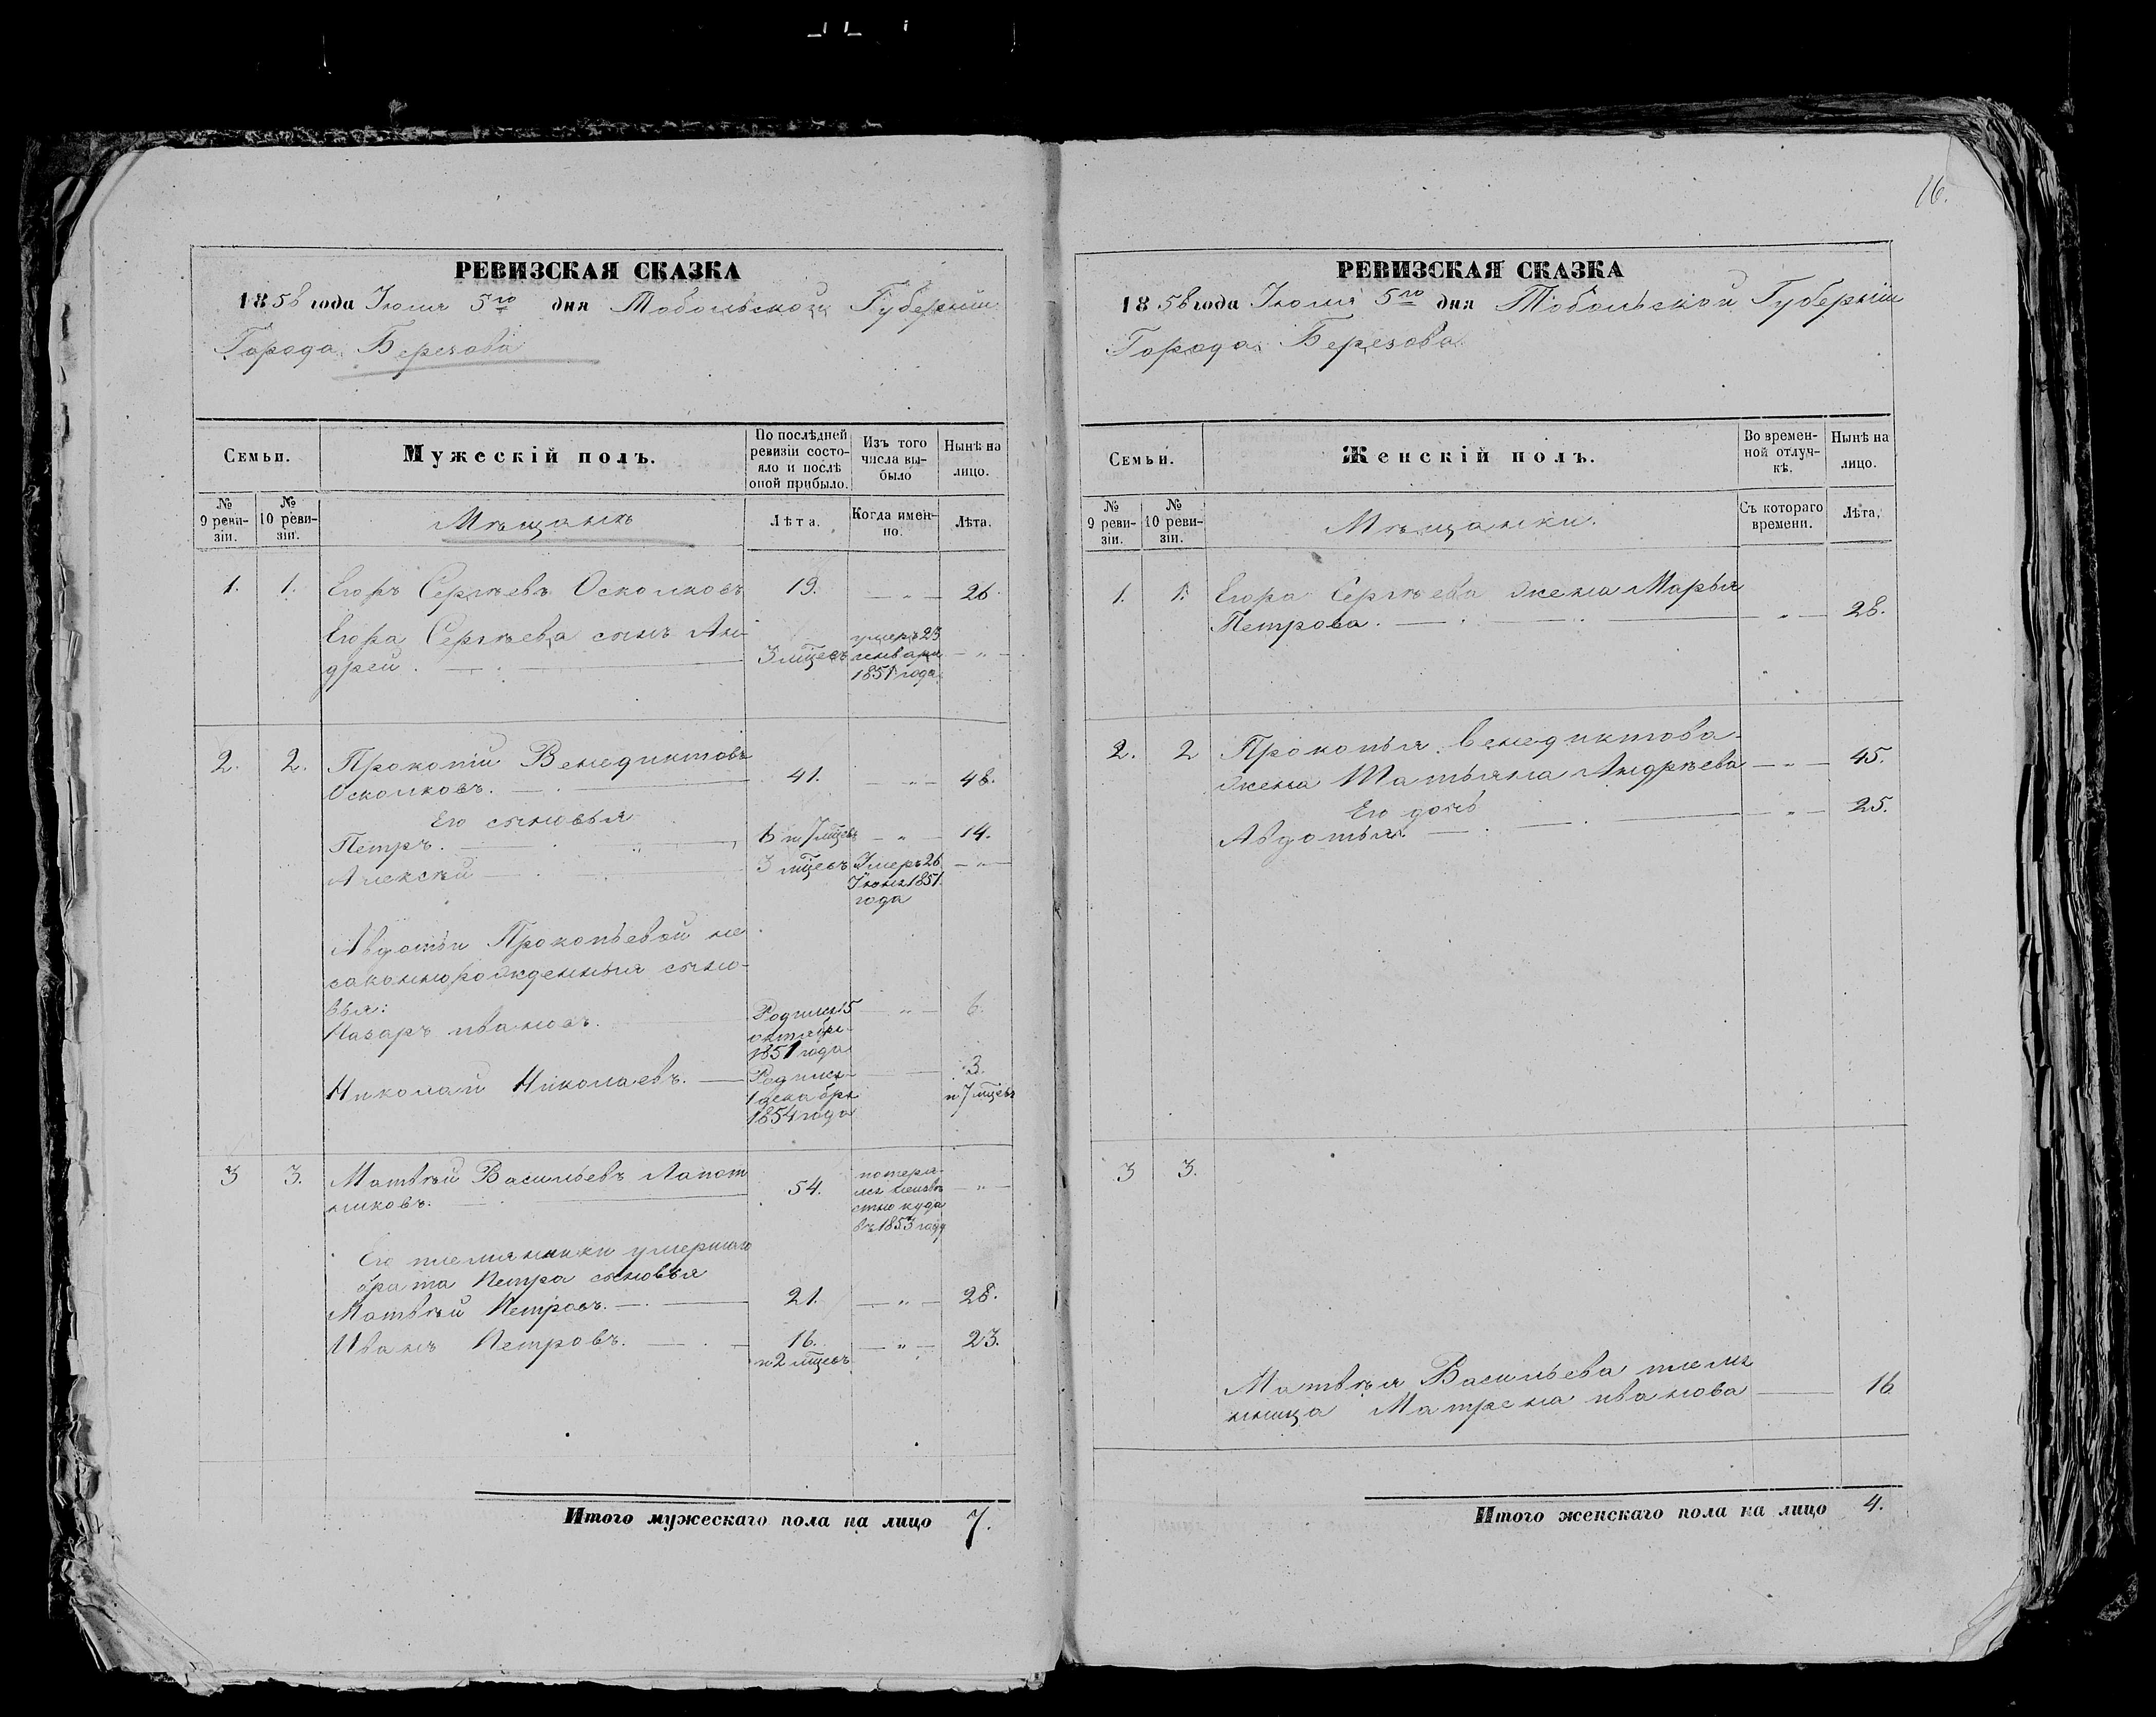 РЕВИЗСКАЯ СКАЗКА
1858 года Іюля 5го дня Тобольской Губерніи
Города Березова
Семьи.
Мужескій полъ.
По послѣдней ревизіи состояло и послѣ оной прибыло.
Изъ того числа выбыло
Нынѣ на лицо.
№ 9 ревизіи.
№ 10 ревизіи.
Мѣщанъ
Лѣта.
Когда именно.
Лѣта.
1. 1. Егоръ Сергѣевъ Осколковъ 19. — „ — 26.
Егора Сергѣева сынъ Ан-
дрей. 3 мцевъ умеръ 23 января 1851 года — „ —
2. 2. Прокопій Венедиктовъ
Осколковъ. 41. — „ — 48.
Его сыновья
Петръ. 6 и 7 мцевъ — „ — 14.
Алексѣй 3 мцевъ Умеръ 26 Іюня 1851 года — „ —
Авдотьи Прокопьевой не
законнорожденныя сыно-
вья:
Назаръ Ивановъ. Родился 15 октября 1851 года — „ — 6.
Николай Николаевъ. Родился 1 декабря 1854 года — 3. и 7 мцевъ
3 3. Матвѣй Васильевъ Лапот
никовъ. 54. потерялся неизвѣстно куда въ 1853 году — „ —
Его племянники умершаго
брата Петра сыновья
Матвѣй Петровъ. 21. — „ — 28.
Иванъ Петровъ. 16. и 2 мцевъ — „ — 23.
Итого мужескаго пола на лицо 7.
16.
РЕВИЗСКАЯ СКАЗКА
1858 года Іюля 5го дня Тобольской Губерніи
Города Березова
Семьи.
Женскій полъ.
Во временной отлучкѣ.
Нынѣ на лицо.
№ 9 ревизіи.
№ 10 ревизіи.
Мѣщанки.
Съ котораго времени.
Лѣта,
1. 1. Егора Сергѣева жена Марья
Петрова. — „ — 28.
2. 2 Прокопья Венедиктова
жена Татьяна Андрѣева — „ — 45.
Его дочь
Авдотья. — „ — 25.
3 3.
Матвѣя Васильева племя
нница Матрена Иванова — 16
Итого женскаго пола на лицо 4.